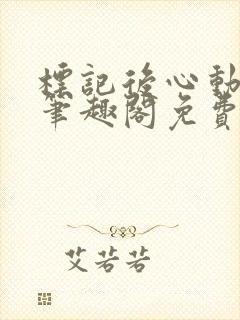 標記後心動
筆趣閣免費
艾若若